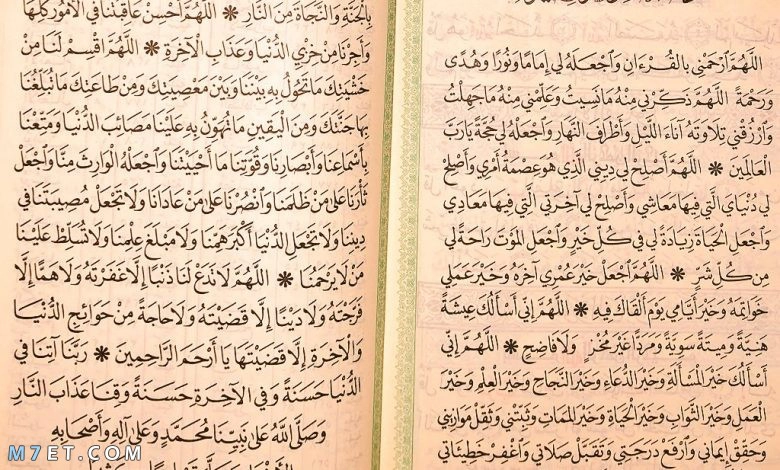 اللَّهُمَّ ارْحَمْنِي بِالقُرْءَانِ وَاجْعَلهُ لِي إِمَامًا وَنُورًا وَهُدًى
وَرَحْمَةً اللَّهُمَّ ذَكِّرْنِي مِنْهُ مَانَسِيتُ وَعَلِّمْنِي مِنْهُ مَاجَهِلْتُ
وَارْزُقْنِي تِلَاوَتَهُ آنَاءَ اللَّيْلِ وَأَطْرَافَ النَّهَارِ وَاجْعَلْهُ لِي حُجَّةً يَارَبَّ
العَالَمِينَ * اللَّهُمَّ أَصْلِحْ لِي دِينِي الَّذِي هُوَ عِصْمَةُ أَمْرِي وَأَصْلِحْ
لِي دُنْيَايَ الَّتِي فِيهَا مَعَاشِي وَأَصْلِحْ لِي آخِرَتِي الَّتِي فِيهَا مَعَادِي
وَاجْعَلِ الحَيَاةَ زِيَادَةً لِي فِي كُلِّ خَيْرٍ وَاجْعَلِ المَوْتَ رَاحَةً لِي
مِن كُلِّ شَرٍّ * اللَّهُمَّ اجْعَلْ خَيْرَ عُمْرِي آخِرَهُ وَخَيْرَ عَمَلِي
خَوَاتِمَهُ وَخَيْرَ أَيَّامِي يَوْمَ أَلْقَاكَ فِيهِ * اللَّهُمَّ إِنِّي أَسْأَلُكَ عِيشَةً
هَنِيَّةً وَمِيتَةً سَوِيَّةً وَمَرَدًّا غَيْرَ مُخْزٍ وَلَا فَاضِحٍ * اللَّهُمَّ إِنِّي
أَسْأَلُكَ خَيْرَ المَسْأَلَةِ وَخَيْرَ الدُّعَاءِ وَخَيْرَ النَّجَاحِ وَخَيْرَ العِلْمِ وَخَيْرَ
العَمَلِ وَخَيْرَ الثَّوَابِ وَخَيْرَ الحَيَاةِ وَخَيْرَ المَمَاتِ وَثَبِّتْنِي وَثَقِّلْ مَوَازِينِي
وَحَقِّقْ إِيمَانِي وَارْفَعْ دَرَجَتِي وَتَقَبَّلْ صَلَاتِي وَاغْفِرْ خَطِيئَاتِي
بِالجَنَّةِ وَالنَّجَاةَ مِنَ النَّارِ * اللَّهُمَّ أَحْسِنْ عَاقِبَتَنَا فِي الأُمُورِ كُلِّهَا
وَأَجِرْنَا مِنْ خِزْيِ الدُّنْيَا وَعَذَابِ الآخِرَةِ * اللَّهُمَّ اقْسِمْ لَنَا مِنْ
خَشْيَتِكَ مَاتَحُولُ بِهِ بَيْنَنَا وَبَيْنَ مَعْصِيَتِكَ وَمِن طَاعَتِكَ مَاتُبَلِّغُنَا
بِهَا جَنَّتَكَ وَمِنَ اليَقِينِ مَاتُهَوِّنُ بِهِ عَلَيْنَا مَصَائِبَ الدُّنْيَا وَمَتِّعْنَا
بِأَسْمَاعِنَا وَأَبْصَارِنَا وَقُوَّتِنَا مَا أَحْيَيْتَنَا وَاجْعَلْهُ الوَارِثَ مِنَّا وَاجْعَل
ثَأْرَنَا عَلَى مَنْ ظَلَمَنَا وَانْصُرْنَا عَلَى مَنْ عَادَانَا وَلَا تَجْعَلْ مُصِيبَتَنَا فِي
دِينِنَا وَلَا تَجْعَلِ الدُّنْيَا أَكْبَرَ هَمِّنَا وَلَا مَبْلَغَ عِلْمِنَا وَلَا تُسَلِّطْ عَلَيْنَا
مَنْ لَا يَرْحَمُنَا * اللَّهُمَّ لَا تَدَعْ لَنَا ذَنْبًا إِلَّا غَفَرْتَهُ وَلَا هَمًّا إِلَّا
فَرَّجْتَهُ وَلَا دَيْنًا إِلَّا قَضَيْتَهُ وَلَا حَاجَةً مِنْ حَوَائِجِ الدُّنْيَا
وَالآخِرَةِ إِلَّا قَضَيْتَهَا يَا أَرْحَمَ الرَّاحِمِينَ * رَبَّنَا آتِنَا فِي
الدُّنْيَا حَسَنَةً وَفِي الآخِرَةِ حَسَنَةً وَقِنَا عَذَابَ النَّارِ
وَصَلَّى اللَّهُ عَلَى نَبِيِّنَا مُحَمَّدٍ وَعَلَى آلِهِ وَأَصْحَابِهِ
M7ET.COM